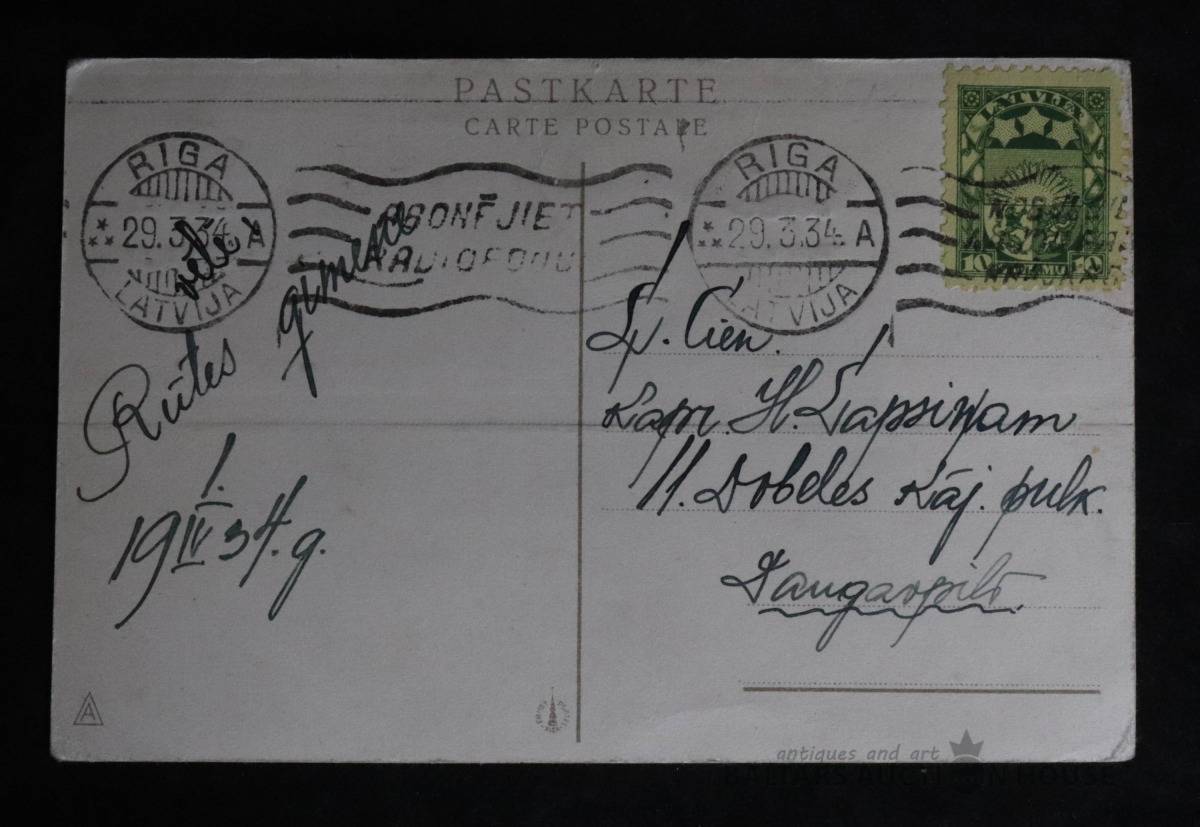 PASTKARTE
CARTE POSTALE
RIGA
29.3.34 A
LATVIJA
ABONĒJIET
RADIOFONU
RIGA
29.3.34 A
LATVIJA
LATVIJA
10 10
Rūtes
ģimene
1.
19 IV 34. g.
Ļ. Cien.
Kapt. H. Lapsiņam
11. Dobeles kāj. pulk.
Daugavpilī
A
antiques and art
BALTARS AUCTION HOUSE